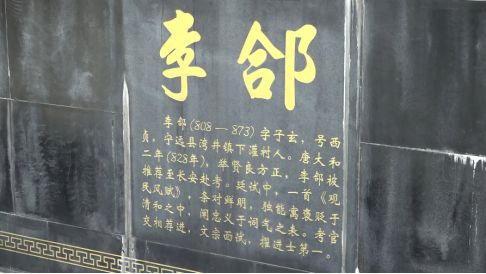 李郃
李郃(808—873)字子玄，号西
贞，宁远县湾井镇下灌村人。唐大和
二年(828年)，举贤良方正，李郃被
推荐至长安赴考。廷试中，一首《观
民风赋》，条对鲜明，独能寓褒贬于
清和之中，阐忠义于词气之表。考官
交相荐进，文宗面试，擢进士第一。